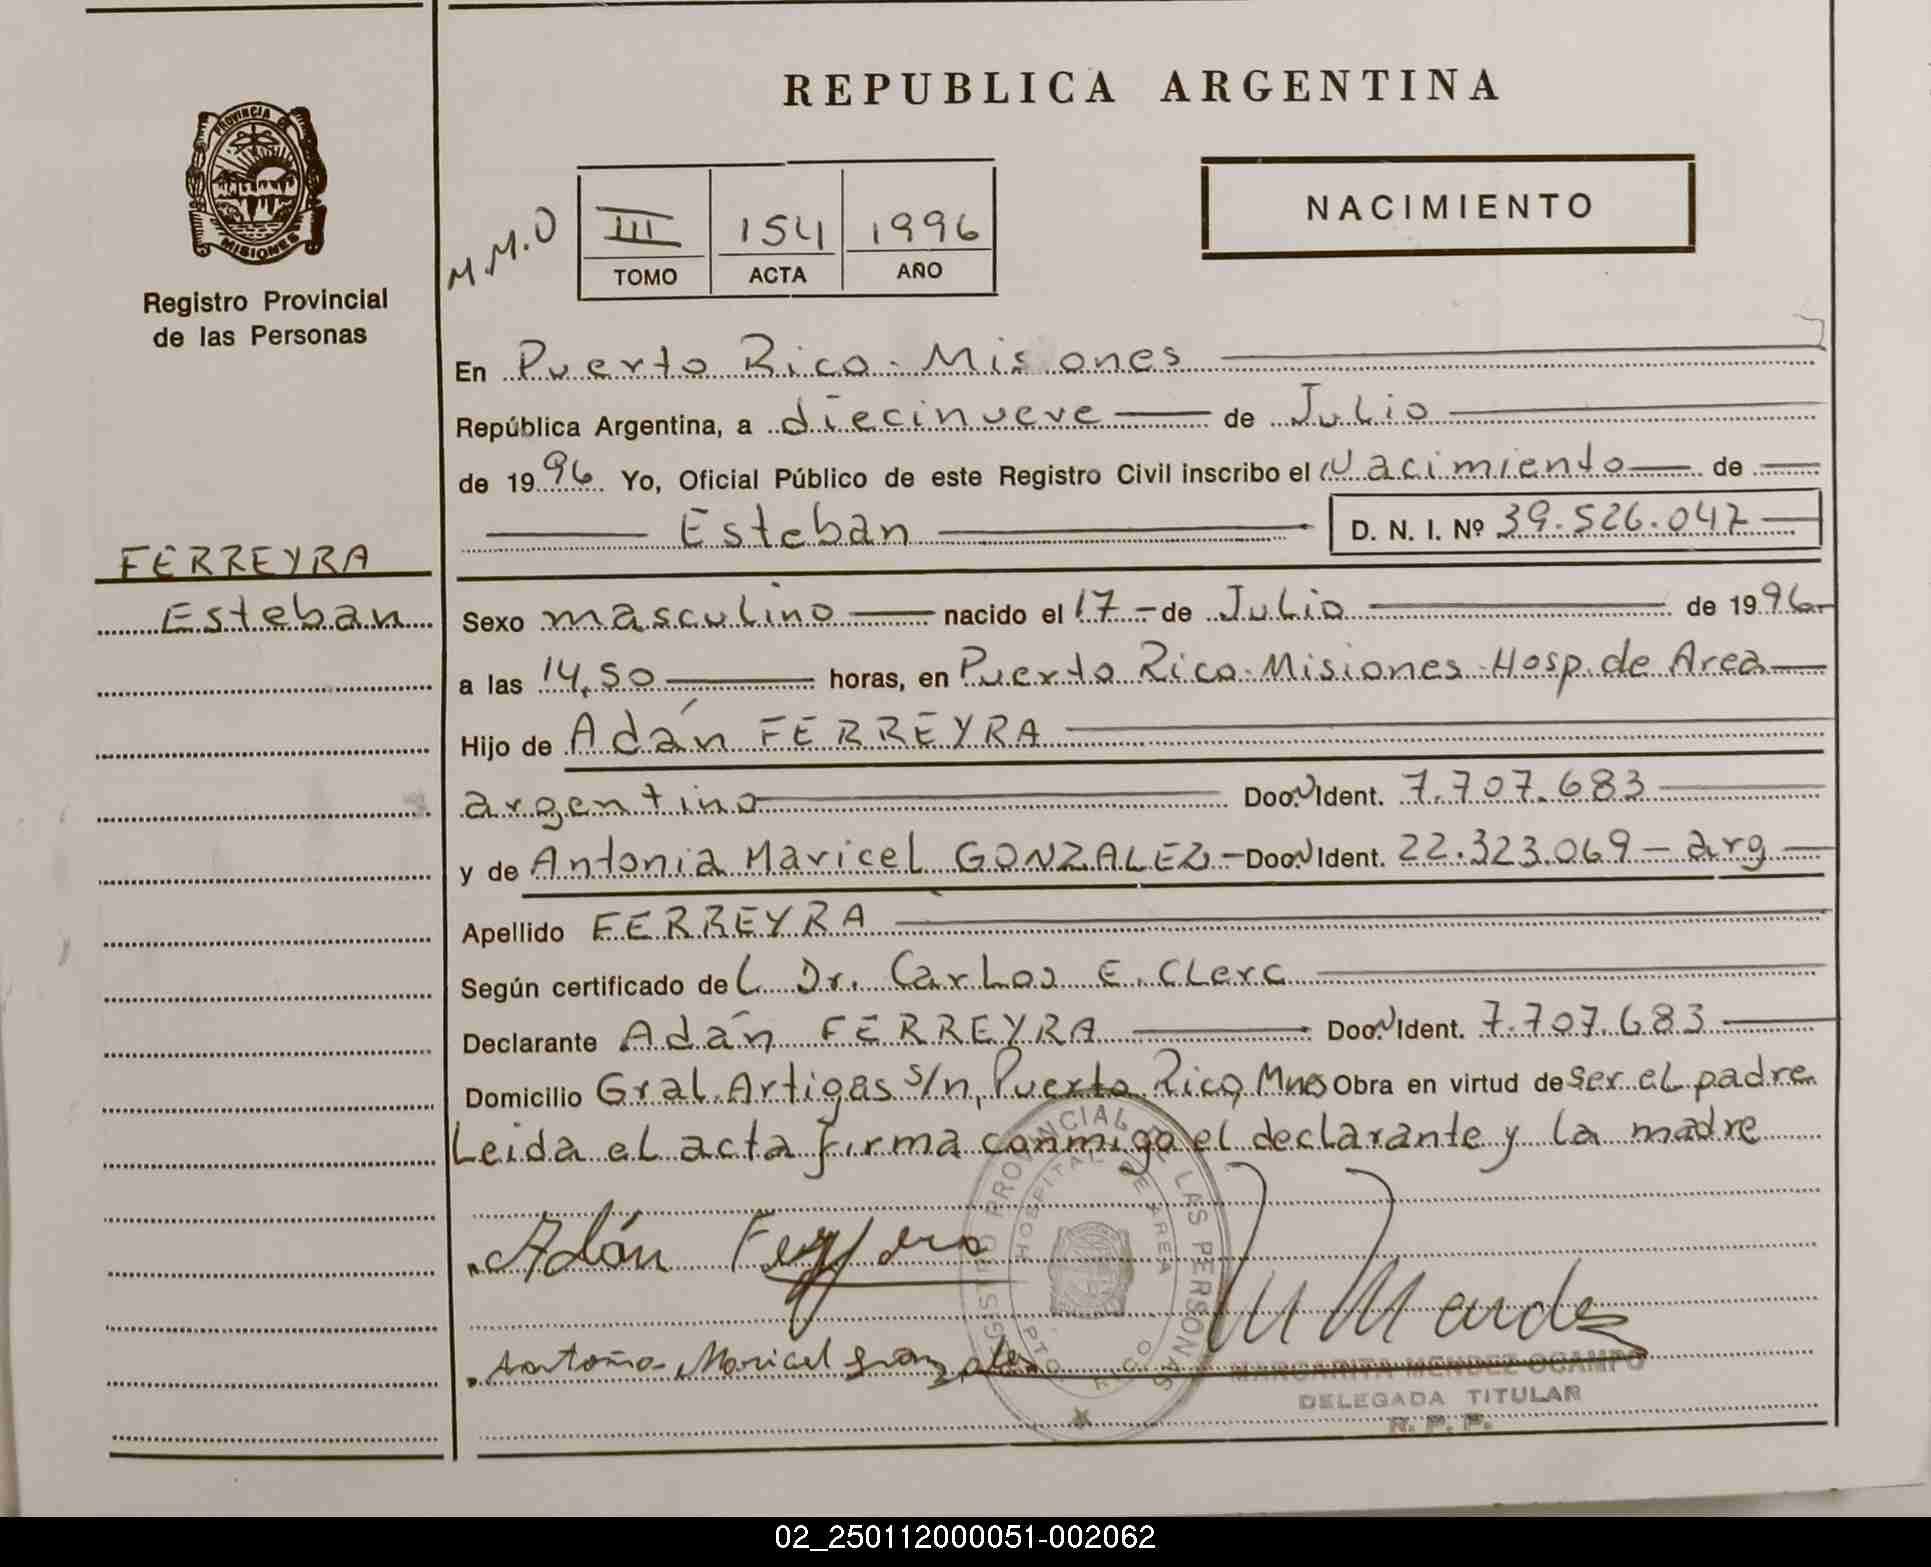 REPUBLICA ARGENTINA
PROVINCIA DE
MISIONES
Registro Provincial
de las Personas
NACIMIENTO
M.M.O
III 154 1996
TOMO ACTA AÑO
En Puerto Rico - Misiones
República Argentina, a diecinueve de Julio
de 1996 Yo, Oficial Público de este Registro Civil inscribo el Nacimiento de
Esteban D. N. I. Nº 39.526.047
FERREYRA
Esteban
Sexo masculino nacido el 17 - de Julio de 1996
a las 14,50 horas, en Puerto Rico - Misiones - Hosp. de Area
Hijo de Adán FERREYRA
argentino Doc. Ident. 7.707.683
y de Antonia Maricel GONZALEZ - Doc. Ident. 22.323.069 - arg
Apellido FERREYRA
Según certificado del Dr. Carlos E. Clerc
Declarante Adán FERREYRA Doc. Ident. 7.707.683
Domicilio Gral. Artigas s/n, Puerto Rico, Mnes Obra en virtud de ser el padre
Leida el acta firma conmigo el declarante y la madre
REGISTRO PROVINCIAL DE LAS PERSONAS
HOSPITAL DE AREA
PTO. RICO
Adán Ferreyra
M Mendez
Antonia Maricel Gonzalez
MARGARITA MENDEZ OCAMPO
DELEGADA TITULAR
R. P. P.
02_250112000051-002062